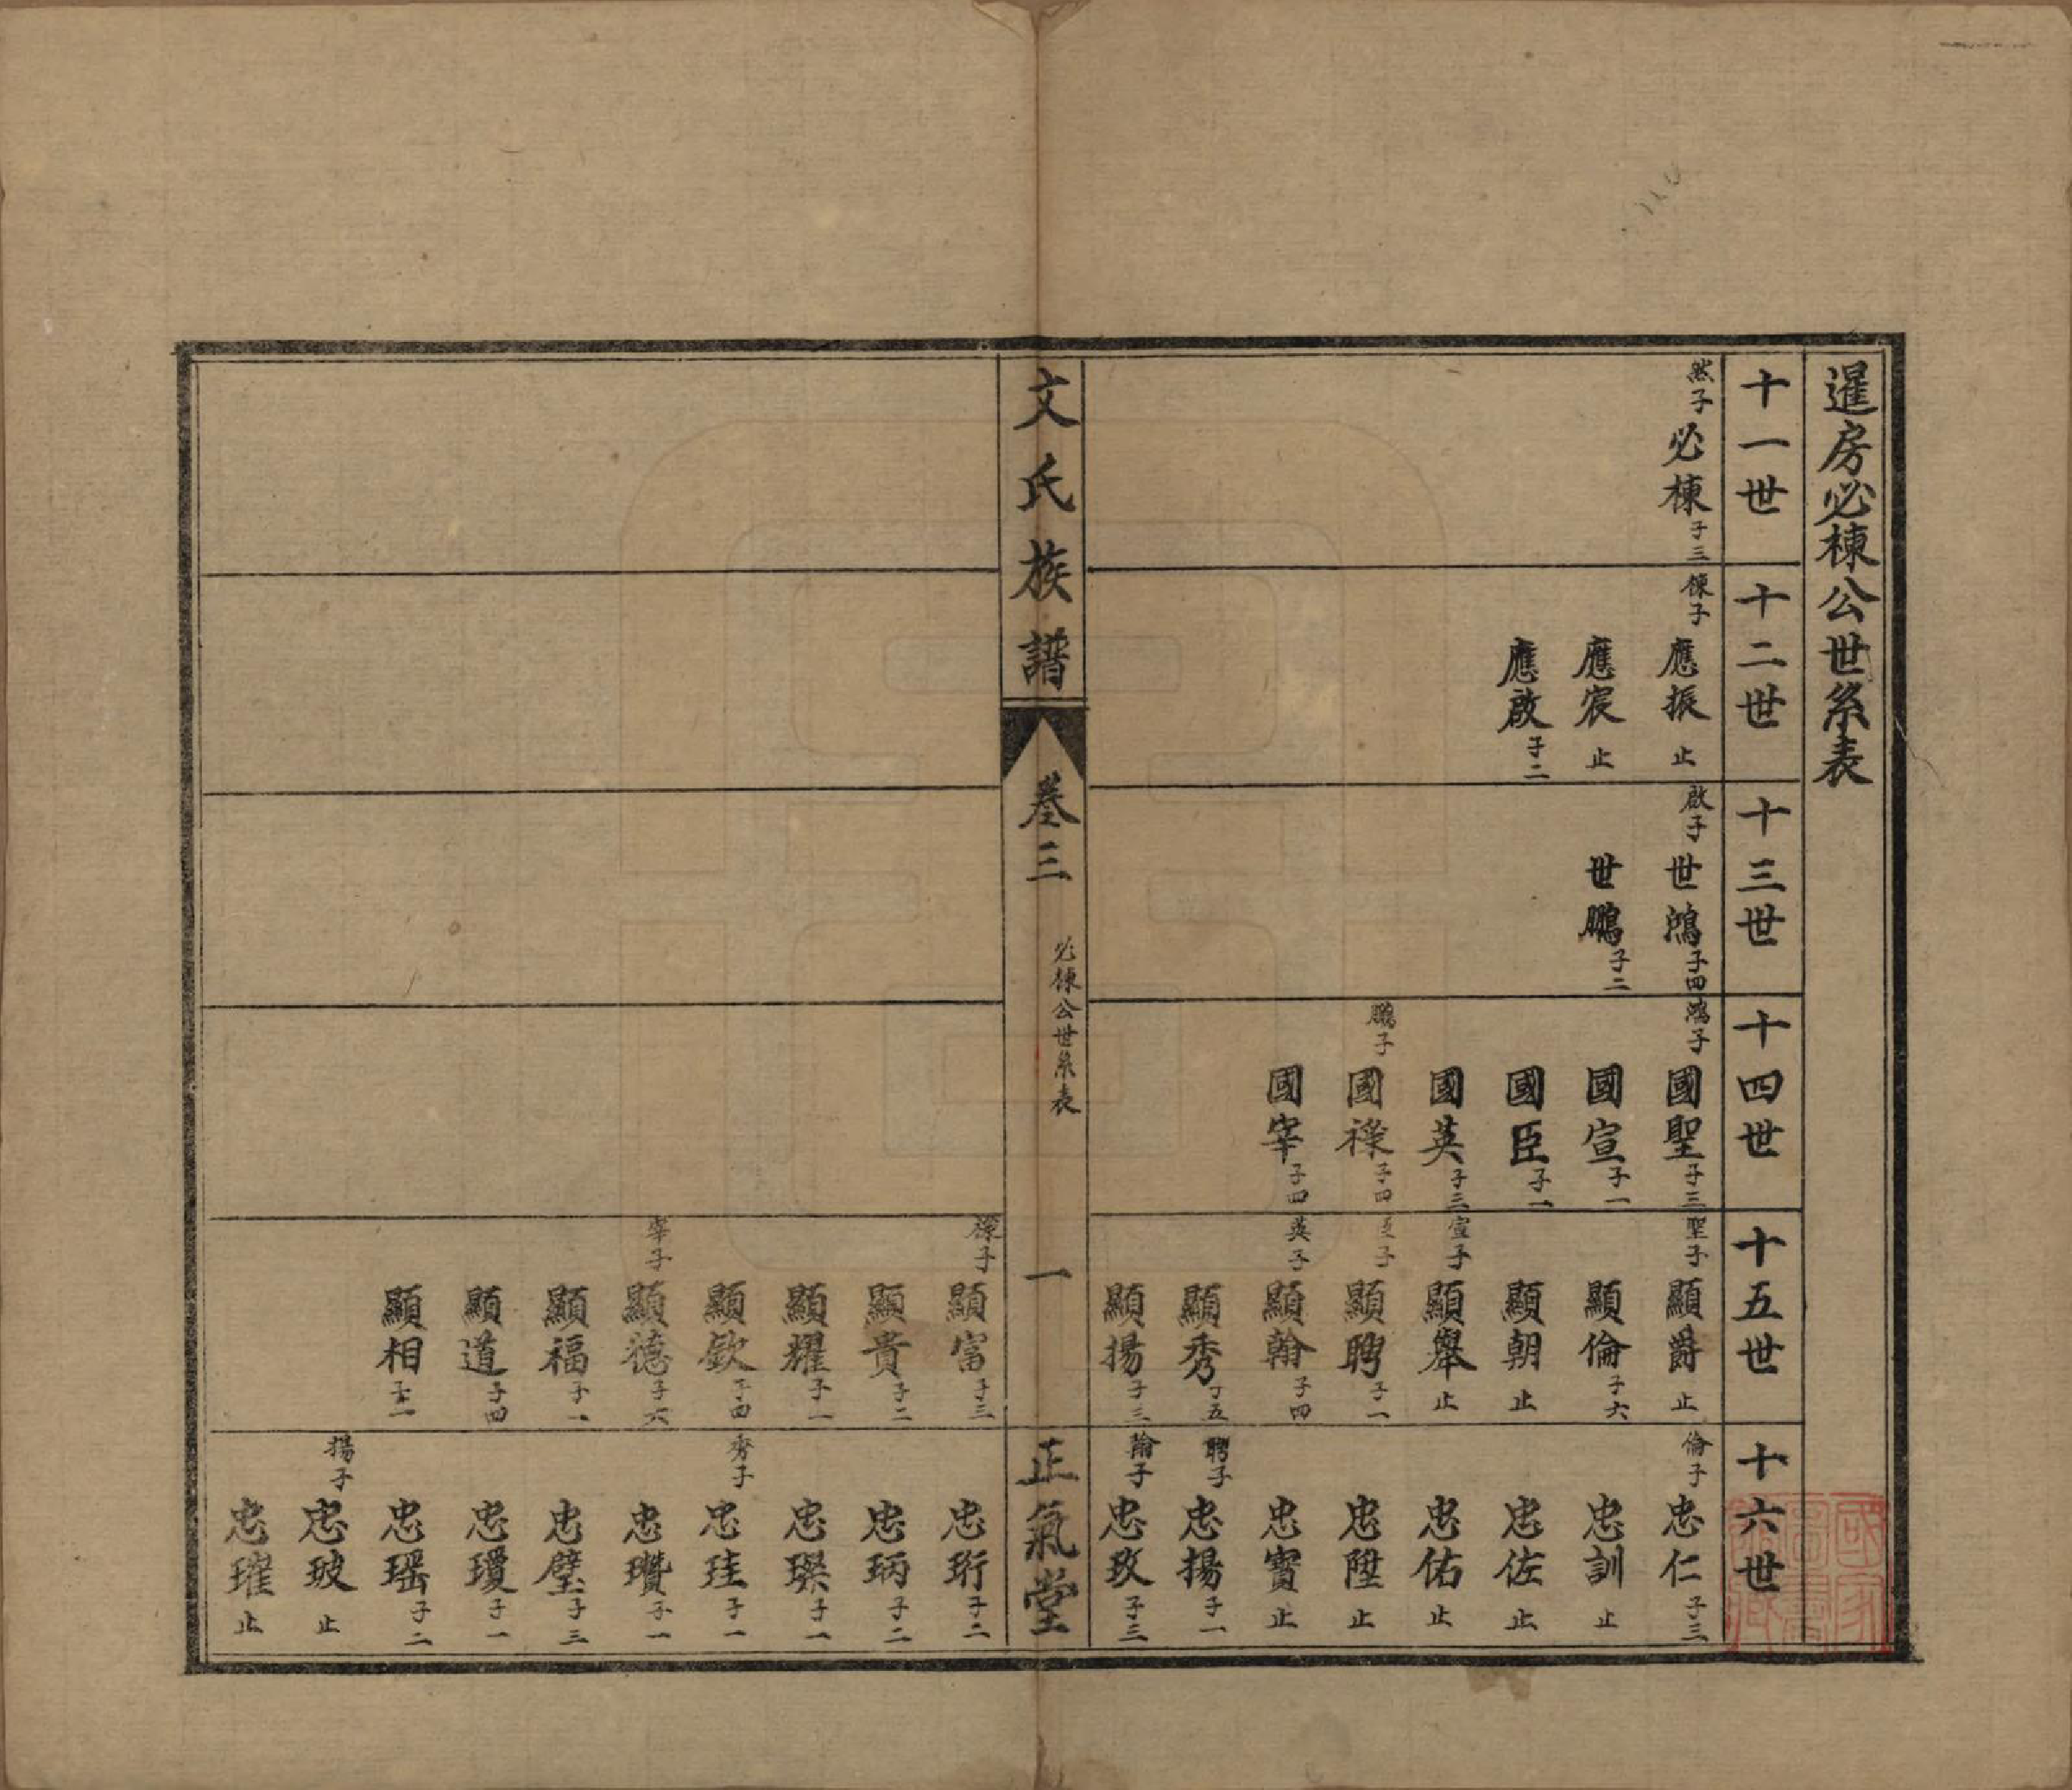 暹房必棟公世系表
十一世
然子 必棟 子三
十二世
棟子 應振 止
應宸 止
應啟 子二
十三世
啟子 世鴻 子四
世鵬 子二
十四世
鴻子 國聖 子三
國宣 子一
國臣 子一
國英 子三
鵬子 國祿 子四
國宰 子四
十五世
聖子 顯爵 止
顯倫 子六
顯朝 止
宣子 顯舉 止
臣子 顯聘 子一
英子 顯翰 子四
顯秀 子五
顯揚 子三
祿子 顯富 子三
顯貴 子二
顯耀 子一
顯欽 子四
宰子 顯德 子六
顯福 子一
顯道 子四
顯相 子二
十六世
倫子 忠仁 子三
忠訓 止
忠佐 止
忠佑 止
忠陞 止
忠寶 止
聘子 忠揚 子一
翰子 忠玫 子三
忠珩 子二
忠琇 子二
忠璨 子一
秀子 忠珪 子一
忠瓚 子一
忠璧 子三
忠瓊 子一
忠瑶 子二
揚子 忠玻 止
忠璀 止
文氏族譜
卷三
必棟公世系表
一
正氣堂